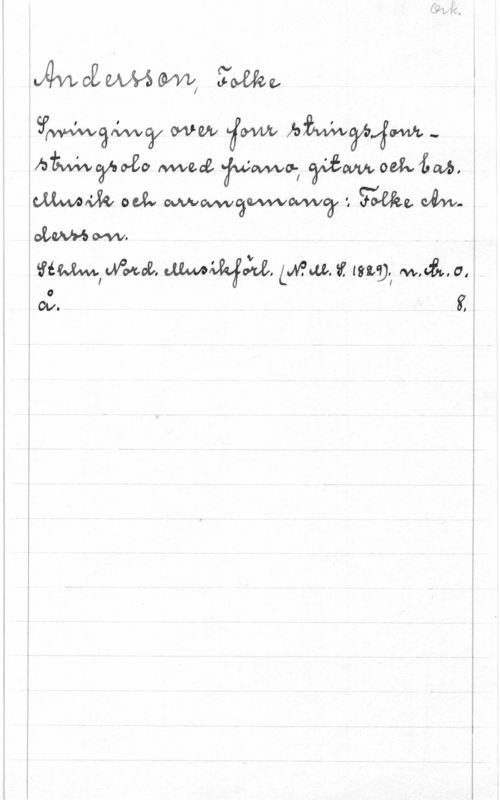 Ork.
Andersson, Folke
Swinging over four strings, four-
stringsolo med piano, gitarr och bas.
Musik och arrangemang: Folke An-
dersson.
Sthlm, Nord. Musikförl. (N.M.S. 1829), n.tr. o.
å. 8,